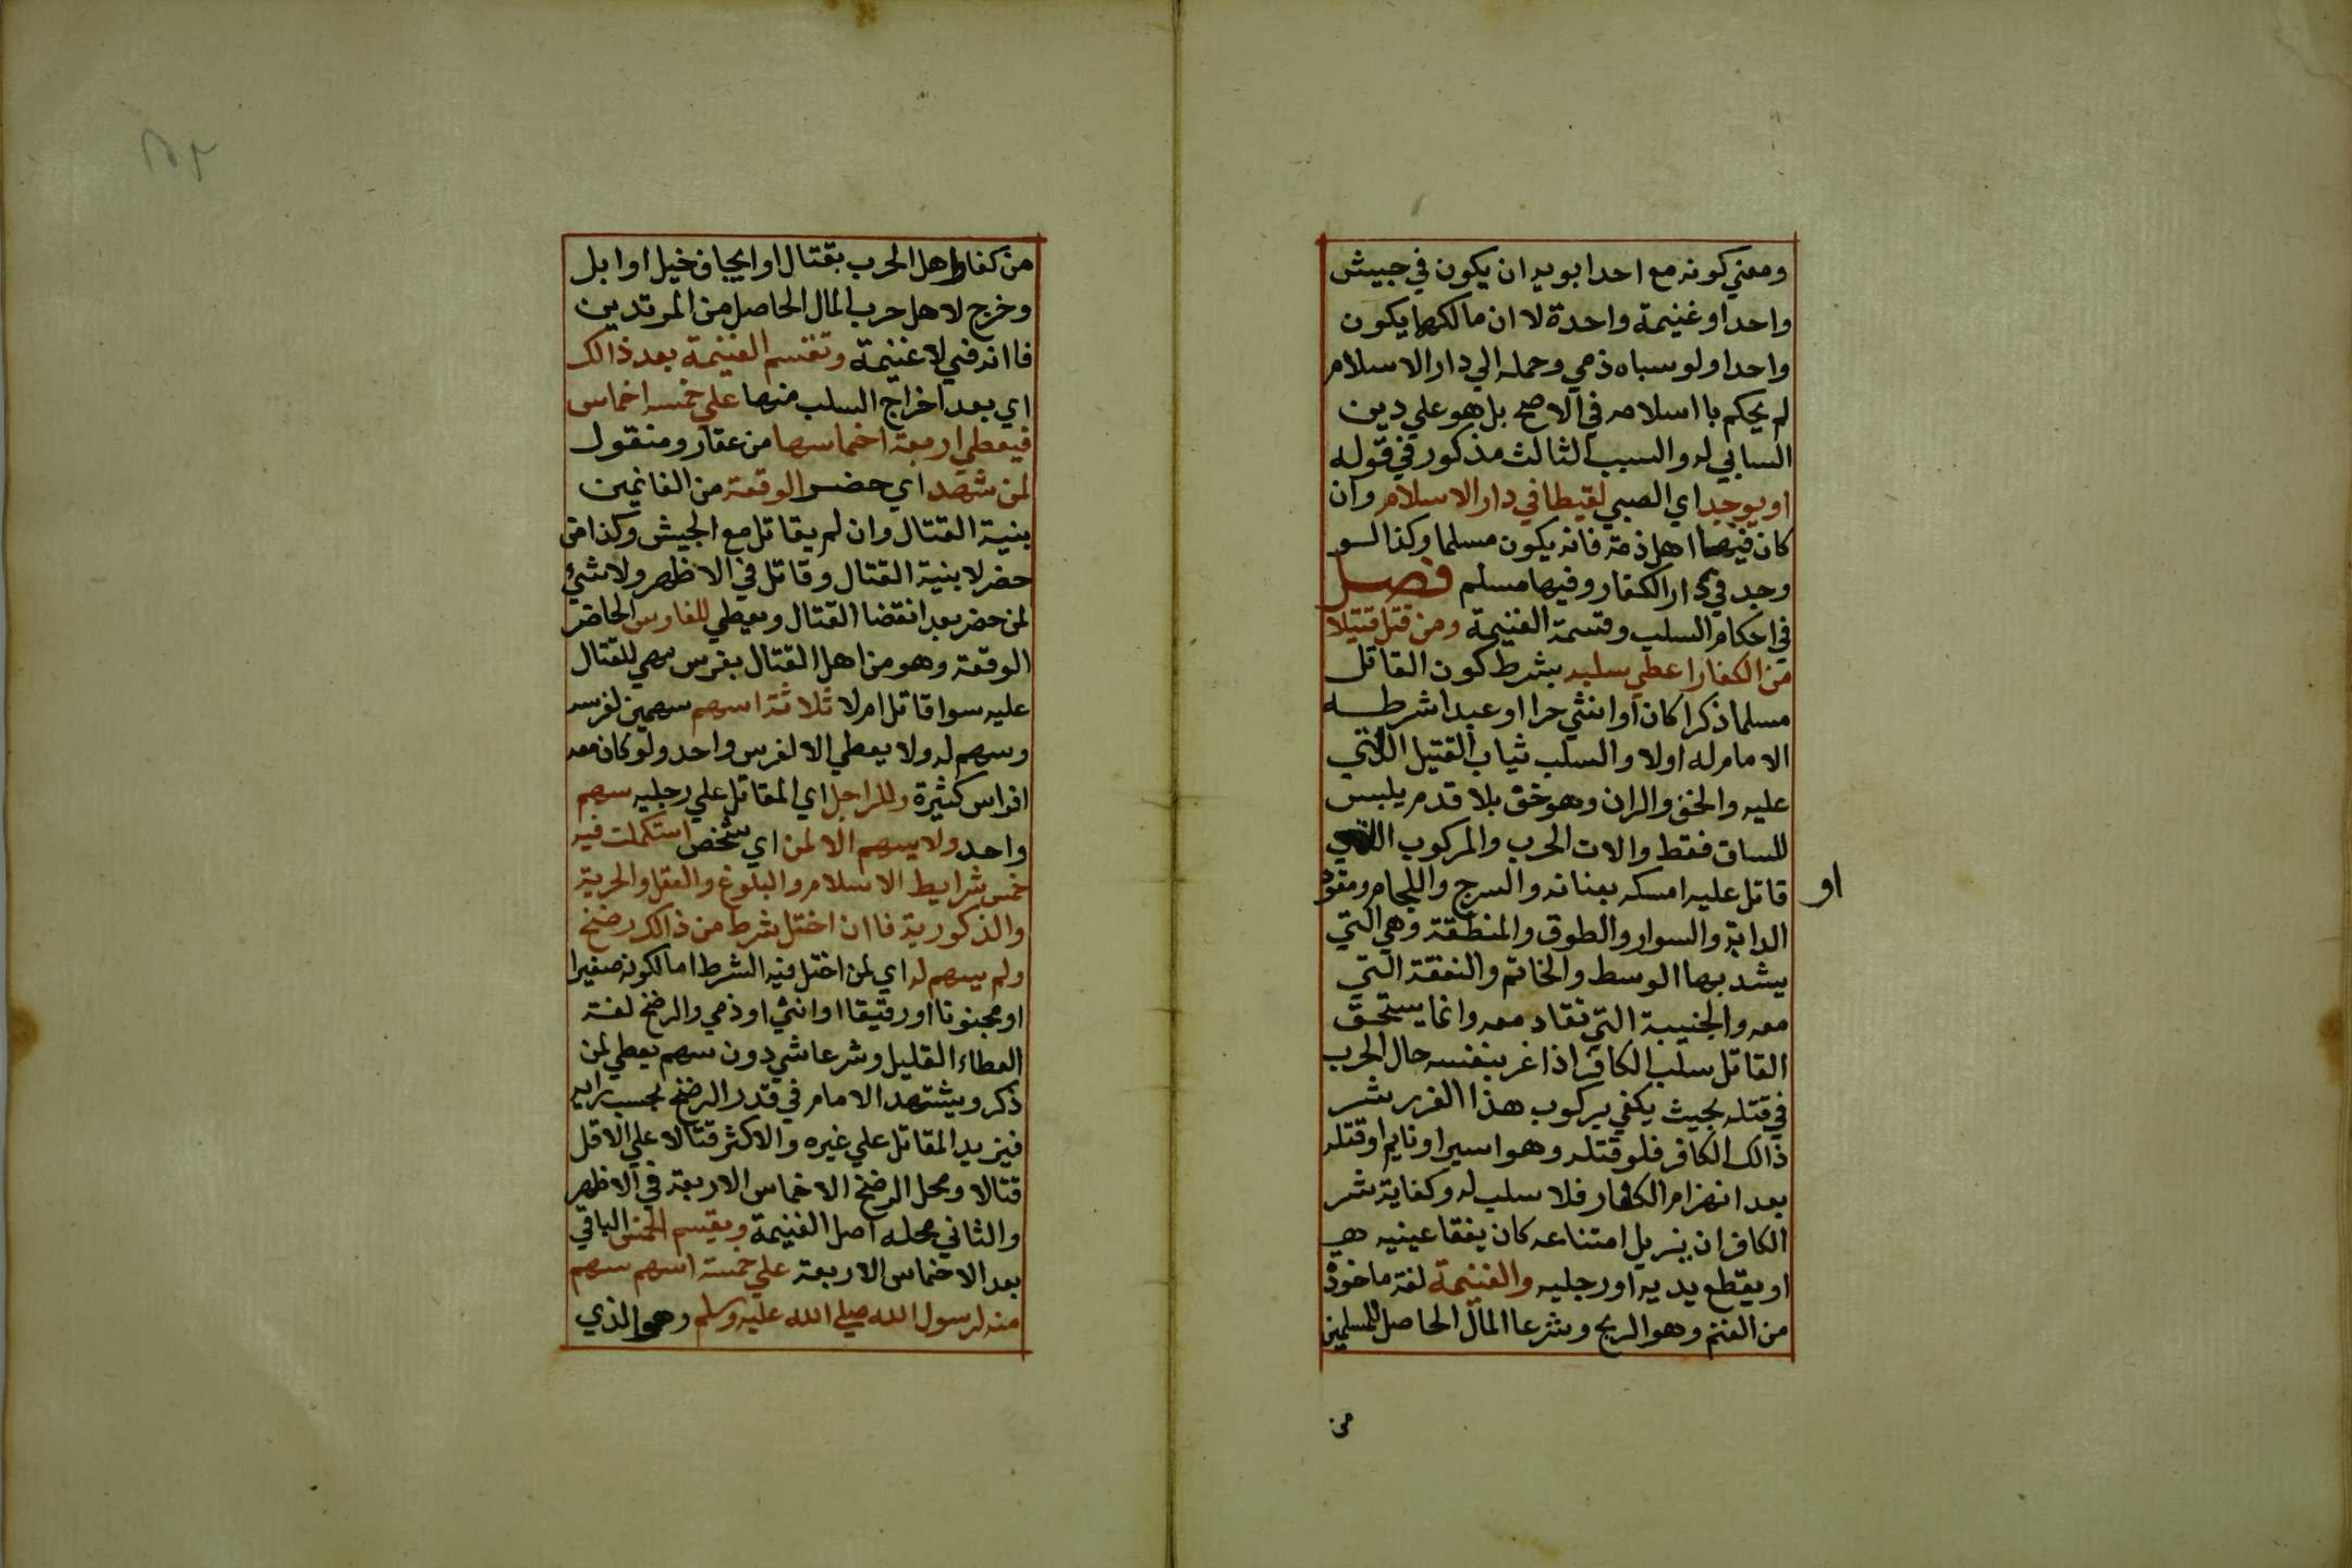 ومعني كونه مع احد ابويه ان يكون في جيش
واحد او غنيمة واحدة لا ان مالكهما يكون
واحدا ولو سباه ذمي وحمله الي دار الاسلام
لم يحكم با اسلامه في الاصح بل هو علي دين
السابي له والسبب الثالث مذكور في قوله
او يوجد اي الصبي لقيطا في دار الاسلام وان
كان فيها اهل ذمة فانه يكون مسلما وكذا لو
وجد في دار الكفار وفيها مسلم فصل
في احكام السلب وقسمة الغنيمة ومن قتل قتيلا
من الكفار اعطي سلبه بشرط كون القاتل
مسلما ذكرا كان او انثي حرا او عبدا شرطه
الامام له اولا والسلب ثياب القتيل التي
عليه والخف والران وهو خف بلا قدم يلبس
للساق فقط والات الحرب والمركوب الذي
قاتل عليه امسكه بعنانه والسرج واللجام ومقود
او
الدابة والسوار والطوق والمنطقة وهي التي
يشد بها الوسط والخاتم والنفقة التي
معه والجنيبة التي تقاد معه وانما يستحق
القاتل سلب الكافر اذا غر بنفسه حال الحرب
في قتله بحيث يكفي بركوب هذا الغرر شر
ذالك الكافر فلو قتله وهو اسير او نايم او قتله
بعد انهزام الكفار فلا سلب له وكفاية شر
الكافر ان يزيل امتناعه كان يفقا عينيه هي
او يقطع يديه او رجليه والغنيمة لغة ماخوذ
من الغنم وهو الربح وشرعا المال الحاصل للمسلمين
من
من كفار اهل الحرب بقتال او ايجاف خيل او ابل
وخرج لاهل حرب المال الحاصل من المرتدين
فاانه في لا غنيمة وتقسم الغنيمة بعد ذالك
اي بعد اخراج السلب منها علي خمسه اخماس
فيعطي اربعة اخماسها من عقار ومنقول
لمن شهد اي حضر الوقعة من الغانمين
بنية القتال وان لم يقاتل مع الجيش وكذا من
حضر لا بنية القتال وقاتل في الاظهر ولا شيء
لمن حضر بعد انقضا القتال ويعطي للفارس الحاضر
الوقعة وهو من اهل القتال بفرس مهي للقتال
عليه سوا قاتل ام لا ثلاثة اسهم سهمين لفرسه
وسهم له ولا يعطي الا لفرس واحد ولو كان معه
افراس كثيرة وللراجل اي المقاتل علي رجليه سهم
واحد ولا يسهم الا لمن اي شخص استكملت فيه
خمس شرايط الاسلام والبلوغ والعقل والحرية
والذكورية فاان اختل شرط من ذالك رضخ
ولم يسهم له اي لمن اختل فيه الشرط اما لكونه صغيرا
او مجنونا او رقيقا او انثي او ذمي والرضخ لغة
العطاء القليل وشرعا شي دون سهم يعطي لمن
ذكر ويشتهد الامام في قدر الرضخ بحسب رايه
فيزيد المقاتل علي غيره والاكثر قتالا علي الاقل
قتالا ومحل الرضخ الاخماس الاربعة في الاظهر
والثاني محله اصل الغنيمة ويقسم الخمس الباقي
بعد الاخماس الاربعة علي خمسة اسهم سهم
منه لرسول الله صلي الله عليه وسلم وهو الذي